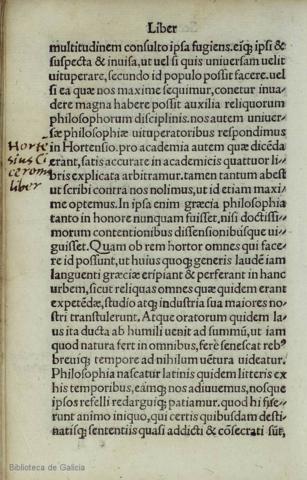 Liber
multitudinem consulto ipsa fugiens. eiq́; ipsi &
suspecta & inuisa, ut uel si quis uniuersam uelit
uituperare, secundo id populo possit facere. uel
si ea quæ nos maxime sequimur, conetur inua⸗
dere magna habere possit auxilia reliquorum
philosophorum disciplinis. nos autem uniuer⸗
sæ philosophiæ uituperatoribus respondimus
in Hortensio. pro academia autem quæ dicēda
erant, satis accurate in academicis quattuor li⸗
bris explicata arbitramur. tamen tantum abest
ut scribi contra nos nolimus, ut id etiam maxi⸗
me optemus. In ipsa enim græcia philosophia
tanto in honore nunquam fuisset, nisi doctissi⸗
morum contentionibus dissensionibúsque ui⸗
guisset. Quam ob rem hortor omnes qui face⸗
re id possunt, ut huius quoq; generis laudē iam
languenti græciæ eripiant & perferant in hanc
urbem, sicut reliquas omnes quæ quidem erant
expetēdæ, studio atq; industria sua maiores no⸗
stri transtulerunt. Atque oratorum quidem la⸗
us ita ducta ab humili uenit ad summū, ut iam
quod natura fert in omnibus, ferè senescat reb9
breuiq; tempore ad nihilum uētura uideatur.
Philosophia nascatur latinis quidem litteris ex
his temporibus, eámq; nos adiuuemus, nosque
ipsos refelli redarguiq; patiamur. quod hi fere⸗
runt animo iniquo, qui certis quibusdam desti⸗
natisq; sententiis quasi addicti & cōsecrati sūt,
Horte
sius Ci
ceronis
liber
Biblioteca de Galicia